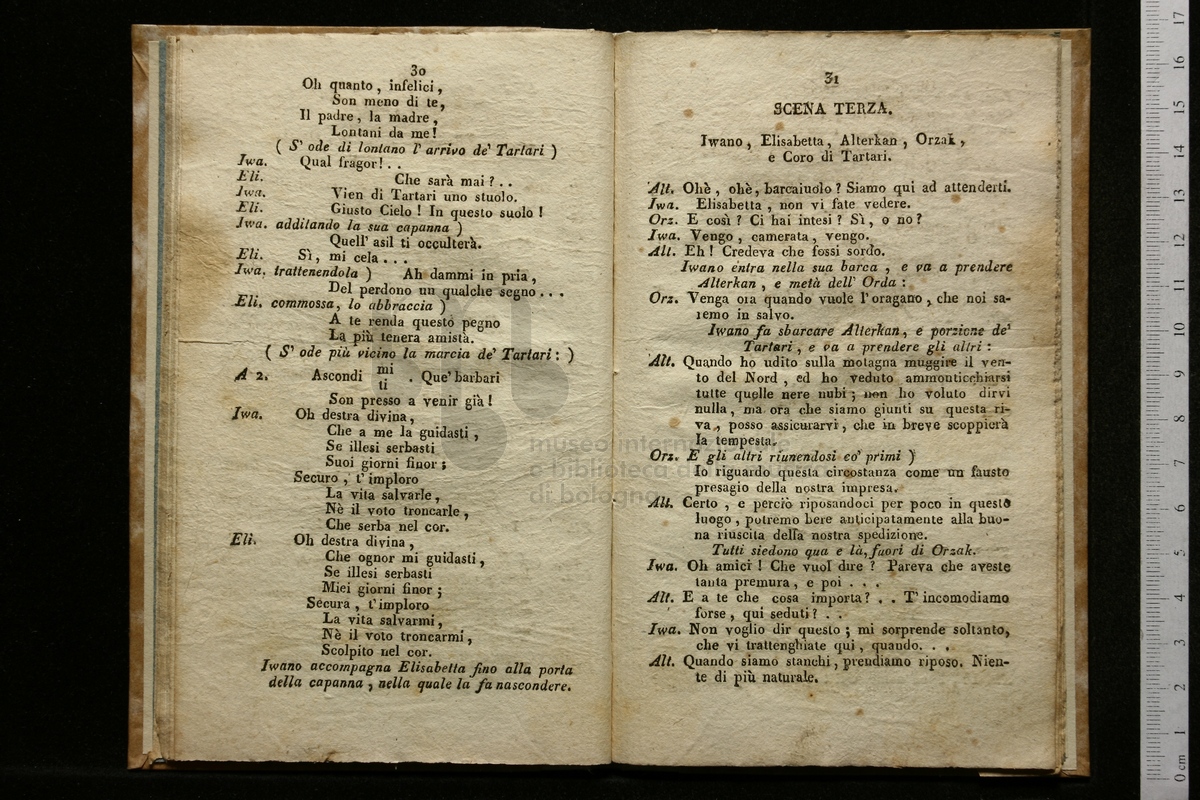 30
Oh quanto, infelici,
Son meno di te,
Il padre, la madre,
Lontani da me!
( S' ode di lontano l' arrivo de' Tartari )
Iwa. Qual fragor! . .
Eli. Che sarà mai? . .
Iwa. Vien di Tartari uno stuolo.
Eli. Giusto Cielo! In questo suolo!
Iwa. additando la sua capanna )
Quell' asil ti occulterà.
Eli. Sì, mi cela . . .
Iwa. trattenendola ) Ah dammi in pria,
Del perdono un qualche segno . . .
Eli. commossa, lo abbraccia )
A te renda questo pegno
La più tenera amistà.
( S' ode più vicino la marcia de' Tartari: )
A 2. Ascondi mi ti . Que' barbari
Son presso a venir già!
Iwa. Oh destra divina,
Che a me la guidasti,
Se illesi serbasti
Suoi giorni finor;
Securo, t' imploro
La vita salvarle,
Nè il voto troncarle,
Che serba nel cor.
Eli. Oh destra divina,
Che ognor mi guidasti,
Se illesi serbasti
Miei giorni finor;
Secura, t' imploro
La vita salvarmi,
Nè il voto troncarmi,
Scolpito nel cor.
Iwano accompagna Elisabetta fino alla porta
della capanna, nella quale la fa nascondere.
31
SCENA TERZA.
Iwano, Elisabetta, Alterkan, Orzak,
e Coro di Tartari.
Alt. Ohè, ohè, barcaiuolo? Siamo qui ad attenderti.
Iwa. Elisabetta, non vi fate vedere.
Orz. E così? Ci hai intesi? Sì, o no?
Iwa. Vengo, camerata, vengo.
Alt. Eh! Credeva che fossi sordo.
Iwano entra nella sua barca, e va a prendere
Alterkan, e metà dell' Orda:
Orz. Venga ora quando vuole l' oragano, che noi sa-
remo in salvo.
Iwano fa sbarcare Alterkan, e porzione de'
Tartari, e va a prendere gli altri:
Alt. Quando ho udito sulla motagna muggire il ven-
to del Nord, ed ho veduto ammonticchiarsi
tutte quelle nere nubi; non ho voluto dirvi
nulla, ma ora che siamo giunti su questa ri-
va, posso assicurarvi, che in breve scoppierà
la tempesta.
Orz. E gli altri riunendosi co' primi )
Io riguardo questa circostanza come un fausto
presagio della nostra impresa.
Alt. Certo, e perciò riposandoci per poco in questo
luogo, potremo bere anticipatamente alla buo-
na riuscita della nostra spedizione.
Tutti siedono qua e là, fuori di Orzak.
Iwa. Oh amici! Che vuol dire? Pareva che aveste
tanta premura, e poi . . .
Alt. E a te che cosa importa? . . T' incomodiamo
forse, qui seduti? . .
Iwa. Non voglio dir questo; mi sorprende soltanto,
che vi trattenghiate qui, quando. . .
Alt. Quando siamo stanchi, prendiamo riposo. Nien-
te di più naturale.
museo internazionale
e biblioteca della
di bologna
0 cm 1 2 3 4 5 6 7 8 9 10 11 12 13 14 15 16 17